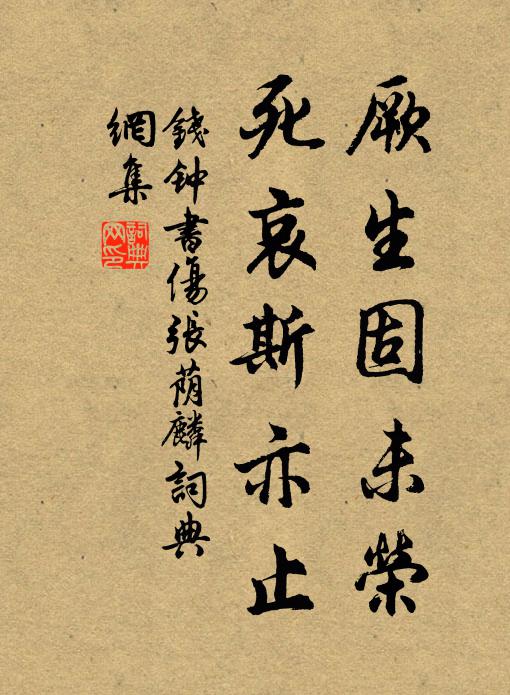 厥生固未榮
死哀斯亦止
錢钟書傷張蔭麟詞典
網集
詞典
网印